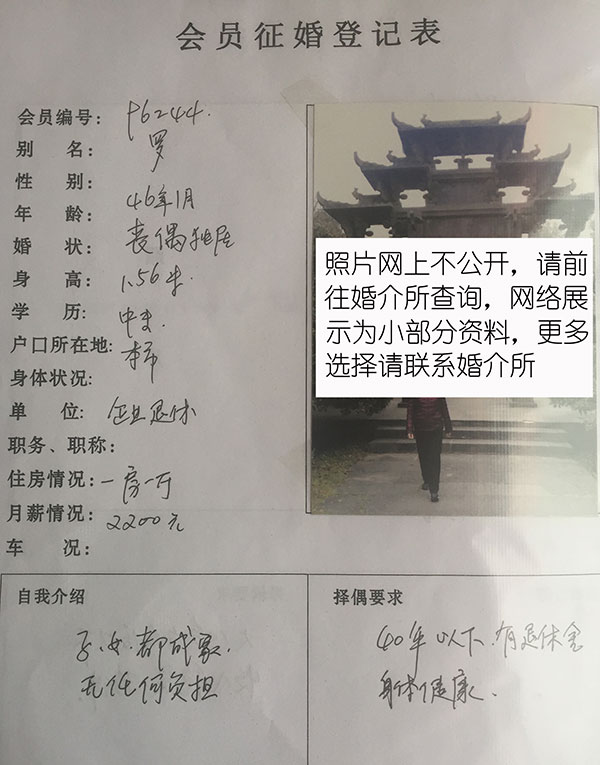 会员征婚登记表
会员编号: P6244.
别 名: 罗
性 别:
年 龄: 46年1月
婚 状: 丧偶独居
身 高: 1.56米
学 历: 中专
户口所在地: 本市
身体状况:
单 位: 企业退休
职务、职称:
住房情况: 一房一厅
月薪情况: 2200元
车 况:
照片网上不公开，请前
往婚介所查询，网络展
示为小部分资料，更多
选择请联系婚介所
自我介绍
子、女都成家.
无任何负担
择偶要求
40年以下.有退休金
身体健康.